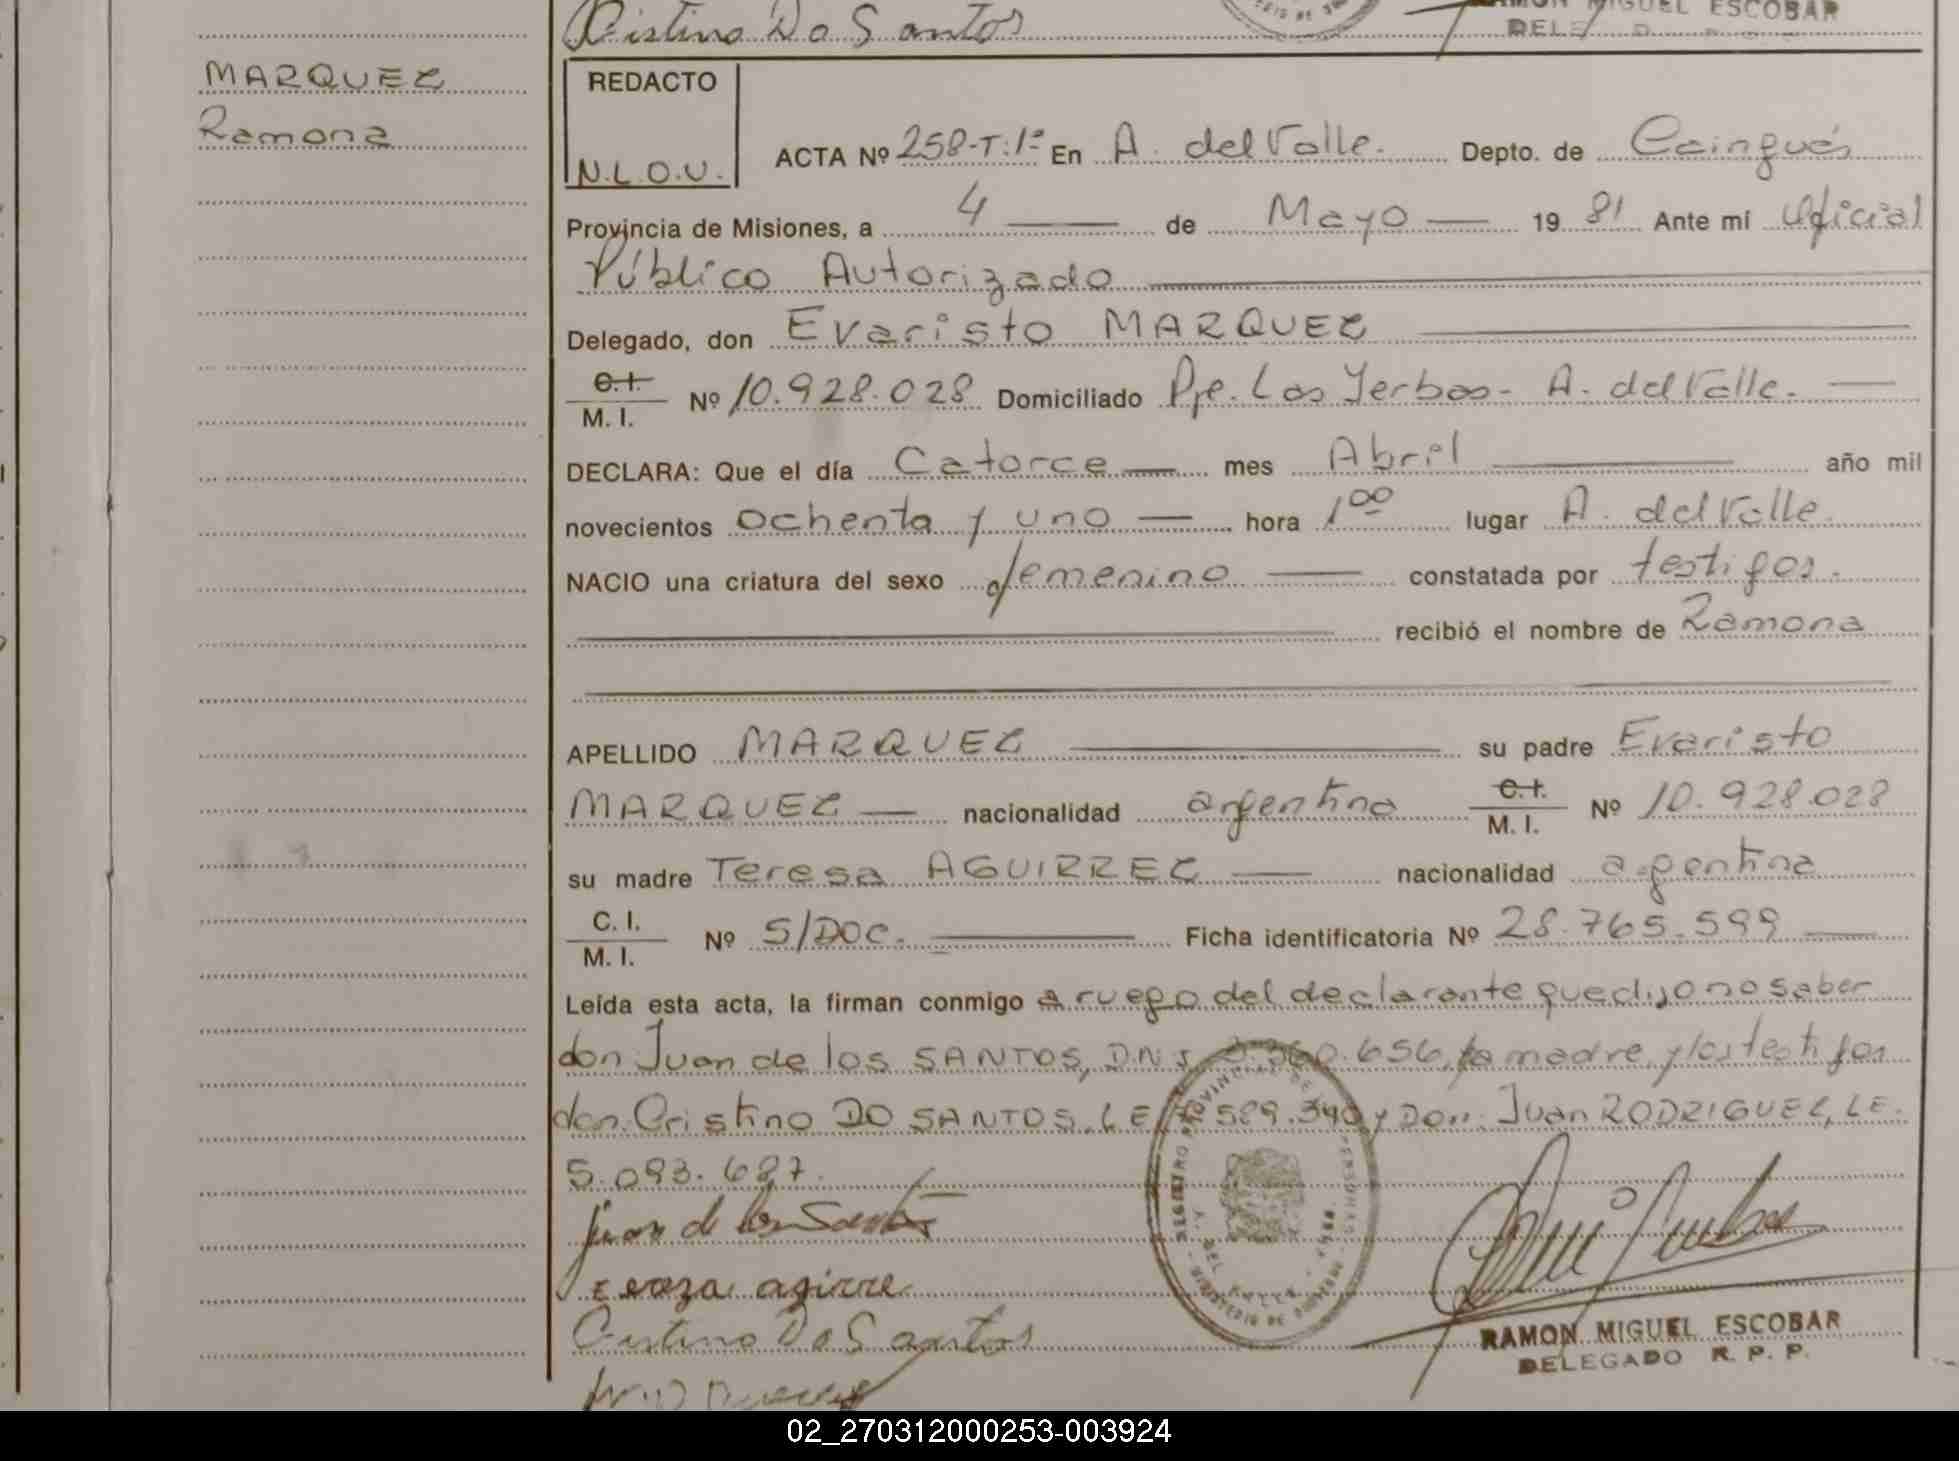 Cristino Do Santos
RAMON MIGUEL ESCOBAR
MARQUEZ
Ramona
REDACTO
N.L.O.V.
ACTA Nº 258-T:1º En A. del Valle. Depto. de Cainguás
Provincia de Misiones, a 4 — de Mayo — 1981 Ante mí Oficial
Público Autorizado
Delegado, don Evaristo MARQUEZ
C.I. / M. I. Nº 10.928.028 Domiciliado Pje. Las Yerbas - A. del Valle. —
DECLARA: Que el día Catorce — mes Abril — año mil
novecientos ochenta y uno — hora 1 00 lugar A. del Valle.
NACIO una criatura del sexo femenino — constatada por testigos.
recibió el nombre de Ramona
APELLIDO MARQUEZ — su padre Evaristo
MARQUEZ — nacionalidad argentina C.I. / M. I. Nº 10.928.028
su madre Teresa AGUIRREZ — nacionalidad argentina
C. I. / M. I. Nº S/DOC. — Ficha identificatoria Nº 28.765.599 —
Leída esta acta, la firman conmigo a ruego del declarante que dijo no saber
don Juan de los SANTOS, D.N.I. .656, la madre, y los testigos
don Cristino DO SANTOS, L.E. 589.340 y Don. Juan RODRIGUEZ, L.E.
5.093.687.
Juan de los Santos
tereza agirre
Cristino Do Santos
RAMON MIGUEL ESCOBAR
DELEGADO R. P. P.
02_270312000253-003924